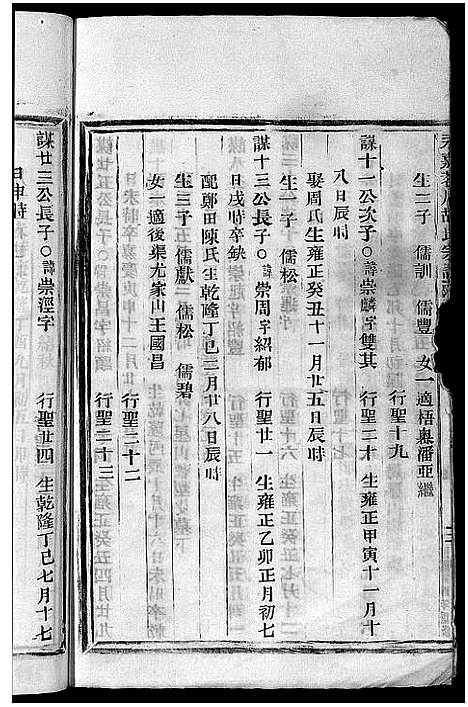 生二子　儒訓　儒豐　女一適梧奧潘亞繼
行聖十九
謀十一公次子○諱崇麟字雙其　行聖二十　生雍正甲寅十一月十
八日辰時
娶周氏生雍正癸丑十一月廿五日辰時
生一子　儒松
謀十三公長子○諱崇周字紹郁　行聖廿一　生雍正乙卯正月初七
日戌時卒缺
配鄭田陳氏生乾隆丁巳三月廿八日辰時
生三子儒獻　儒松　儒碧
女一適後渠尤家山王國昌
行聖二十二
行聖二十三
謀廿三公長子○諱崇淫字　行聖廿四　生乾隆丁巳七月十七
日申時